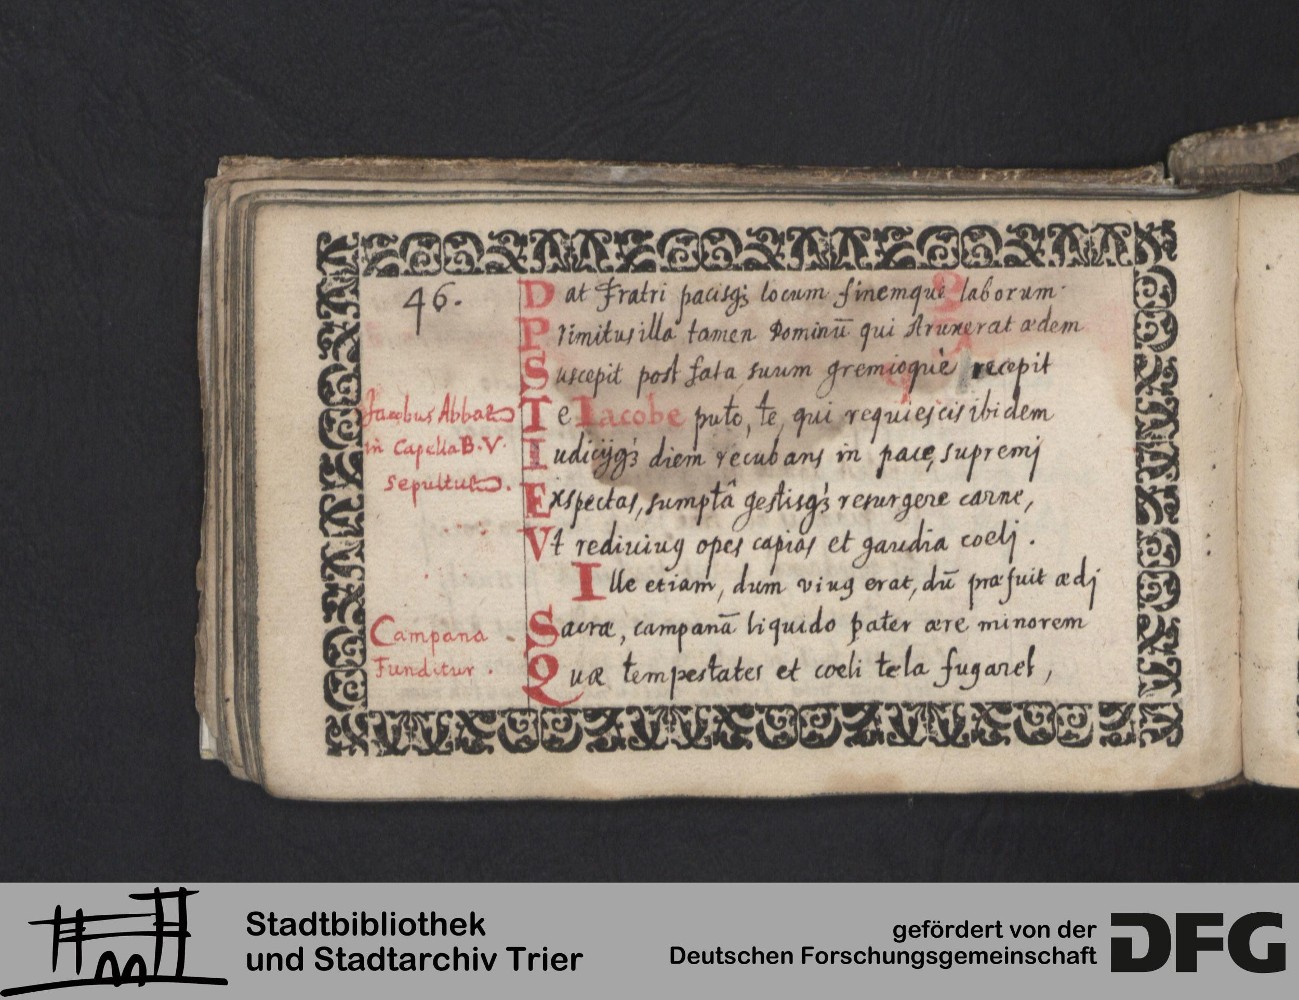 46.
Dat Fratri pacisqꝫ locum finemque laborum.
Primitus illa tamen Dominū qui struxerat ædem
Suscepit post fata suum gremioquè recepit
Te Iacobe puto, te, qui requiescis ibidem
Iudicijqꝫ diem recubans in pace, supremj
Exspectas, sumptâ gestisqꝫ resurgere carne,
Vt rediuiuꝰ opes capias et gaudia coelj.
Ille etiam, dum viuꝰ erat, dū præfuit ædj
Sacræ, campanā liquido pater ære minorem
Quæ tempestates et coeli tela fugaret,
Jacobus Abbas
in Capella B. V.
sepultus.
Campana
Funditur.
Stadtbibliothek
und Stadtarchiv Trier
gefördert von der
Deutschen Forschungsgemeinschaft
DFG